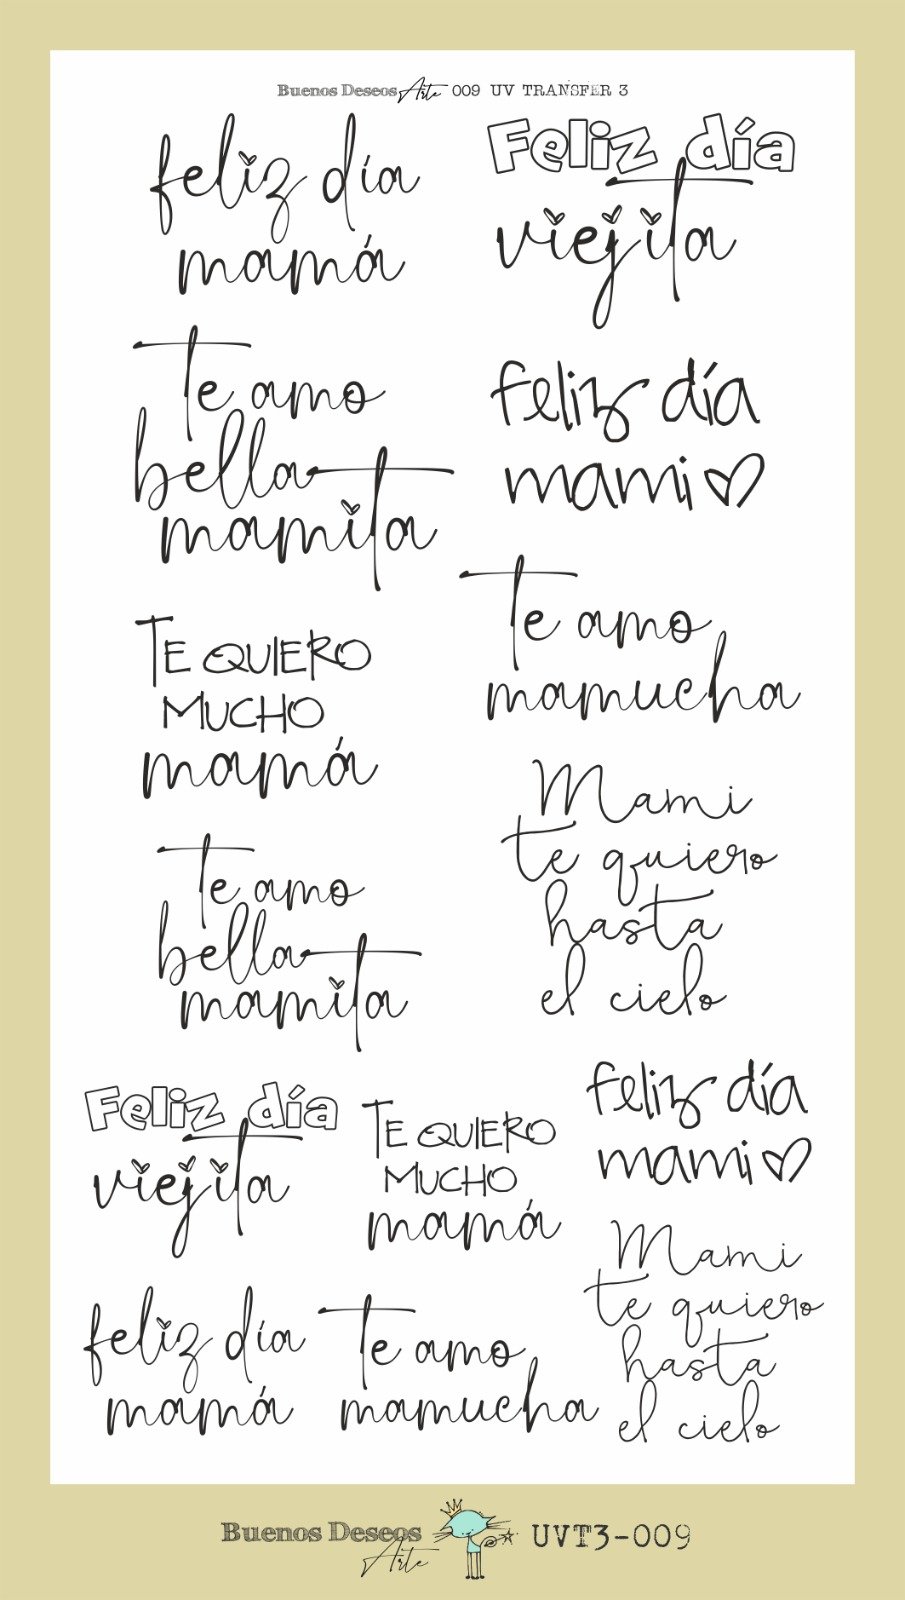 Buenos Deseos Arte 009 UV TRANSFER 3
feliz día
mamá
Feliz día
viejita
Te amo
bella
mamita
feliz día
mami
TE QUIERO
MUCHO
mamá
Te amo
mamucha
Mami
te quiero
hasta
el cielo
Te amo
bella
mamita
Feliz día
viejita
TE QUIERO
MUCHO
mamá
feliz día
mami
feliz día
mamá
Te amo
mamucha
Mami
te quiero
hasta
el cielo
Buenos Deseos
Arte
UVT3-009